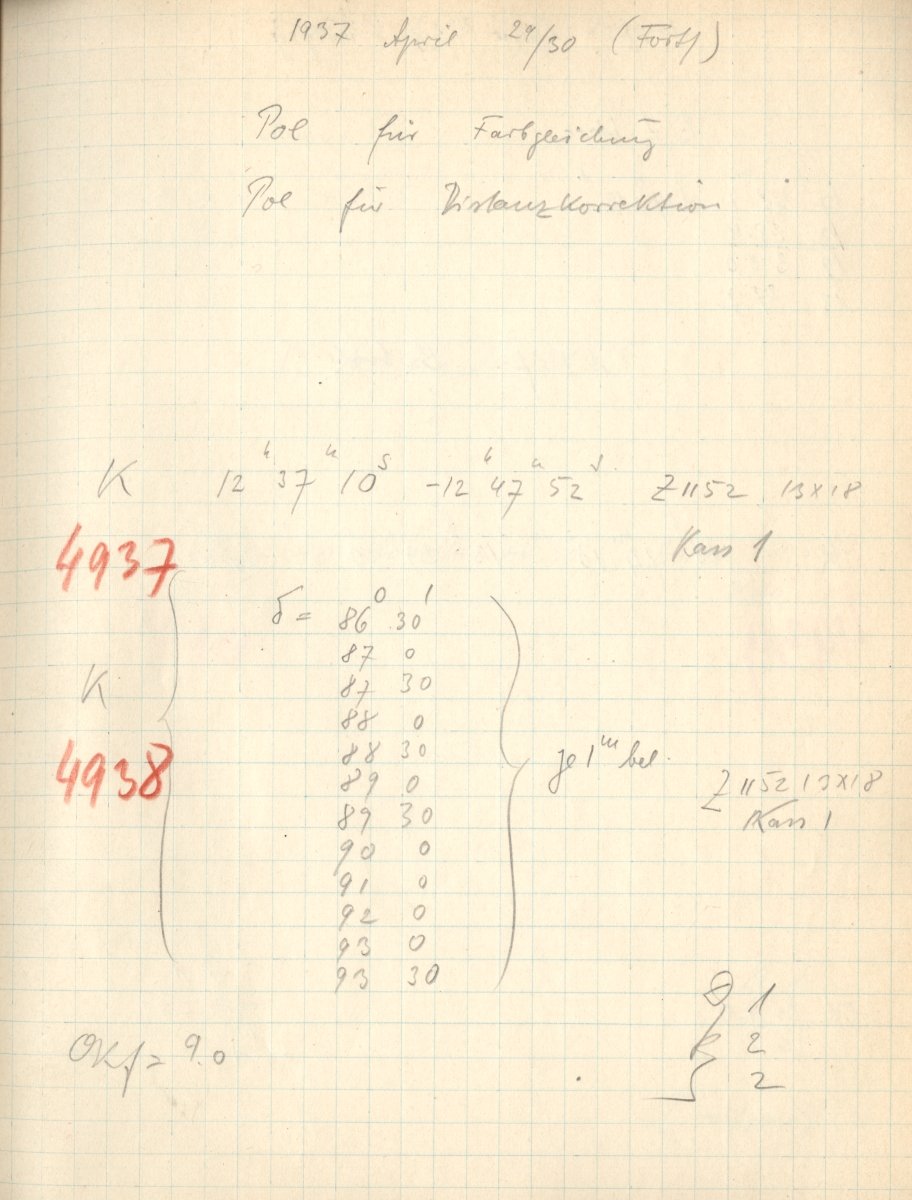 1937 April 29/30 (Forts)
Pol für Farbgleichung
Pol für Distanzkorrektion
K 12h 37m 10s -12h 47m 52s Z 1152 13x18
Kass 1
4937
δ = 86° 30'
87 0
K 87 30
88 0
4938 88 30 je 1m bel.
89 0 Z 1152 13x18
89 30 Kass 1
90 0
91 0
92 0
93 0
93 30
1
OKf = 9.0
2
2